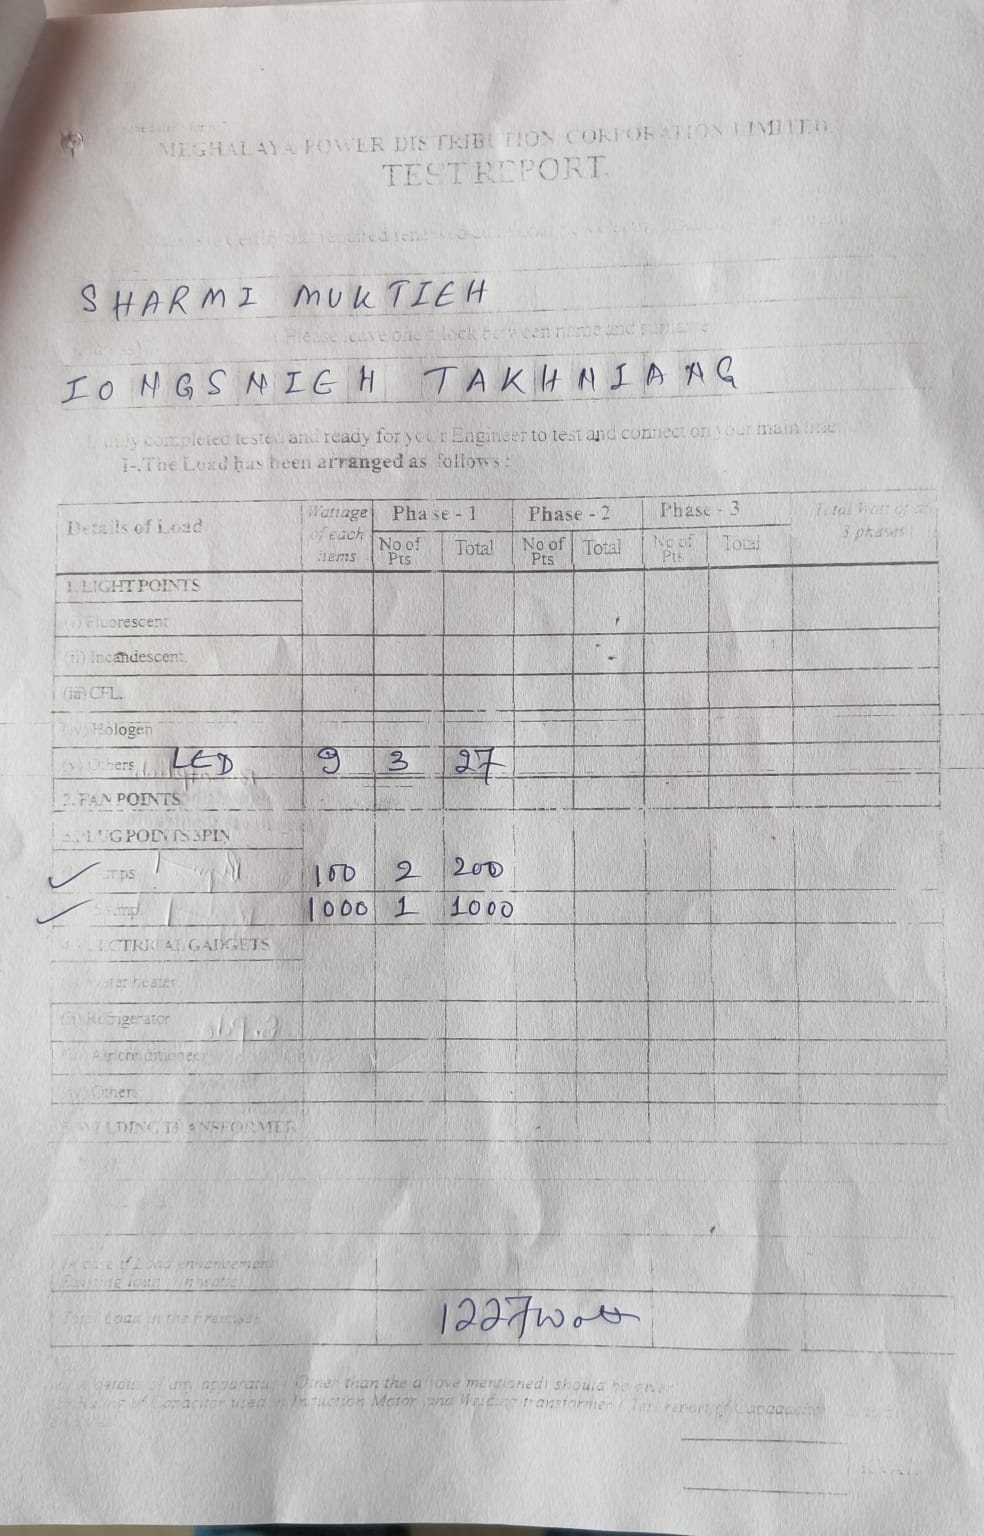 MEGHALAYA POWER DISTRIBUTION CORPORATION LIMITED
TEST REPORT.
SHARMI MUKTIEH
(Please leave one block between name and surname
IONGSNIGH TAKHNIANG
duly completed tested and ready for your Engineer to test and connect on your main line
1-.The Load has been arranged as follows :
Details of Load Wattage of each items Phase - 1 Phase - 2 Phase - 3 Total Watt of all 3 phases
No of Pts Total No of Pts Total No of Pts Total
1. LIGHT POINTS
(i) Fluorescent
(ii) Incandescent.
(iii) CFL.
(iv) Hologen
(v) Others LED 9 3 27
2. FAN POINTS
3. PLUG POINTS 3PIN
100 2 200
1000 1 1000
4. ELECTRICAL GADGETS
Water heater
(ii) Refrigerator
(iii) Air conditioneer
(iv) Others
5. WELDING TRANSFORMER
In case of Load enhancement
Existing load in watts
Total Load in the Premises 1227 watt
of any apparatus (Other than the above mentioned) should be given
of Capacitor used in Induction Motor and Welding transformer / Test report of Capacitor